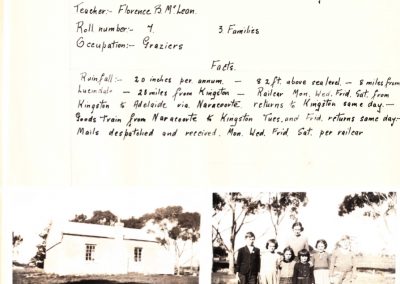 Teacher:- Florence B. McLean.
Roll number:- 7. 3 Families
Occupation:- Graziers
Facts.
Rainfall:- 20 inches per annum. - 82 ft. above sea level. - 8 miles from
Lucindale - 28 miles from Kingston - Railcar Mon. Wed. Frid. Sat. from
Kingston to Adelaide via Naracoorte returns to Kingston same day. -
Goods Train from Naracoorte to Kingston Tues. and Frid. returns same day.-
Mails despatched and received. Mon. Wed. Frid. Sat. per railcar